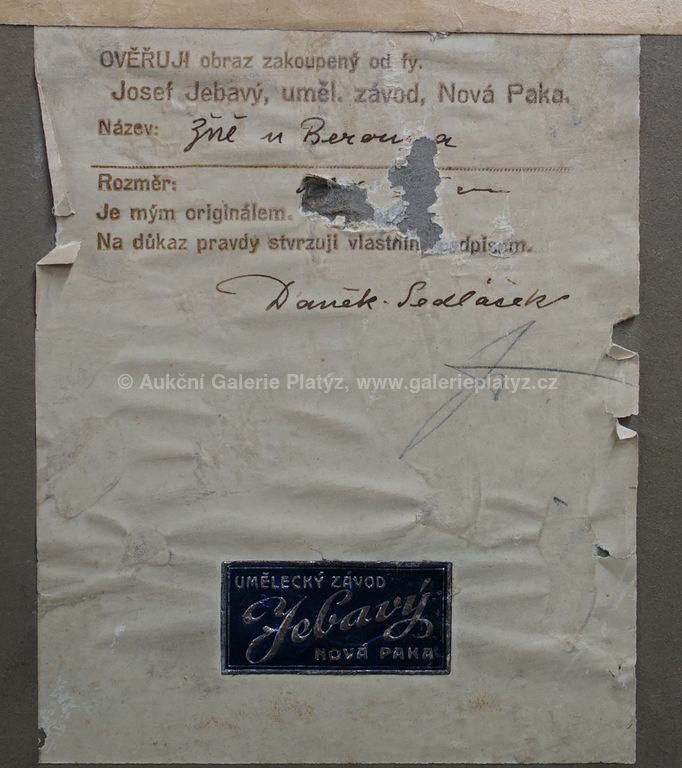 OVĚŘUJI obraz zakoupený od fy.
Josef Jebavý, uměl. závod, Nová Paka.
Název: Žně u Berouna
Rozměr:
Je mým originálem.
Na důkaz pravdy stvrzuji vlastním podpisem.
Daněk-Sedláček
© Aukční Galerie Platýz, www.galerieplatyz.cz
UMĚLECKÝ ZÁVOD
Jebavý
NOVÁ PAKA